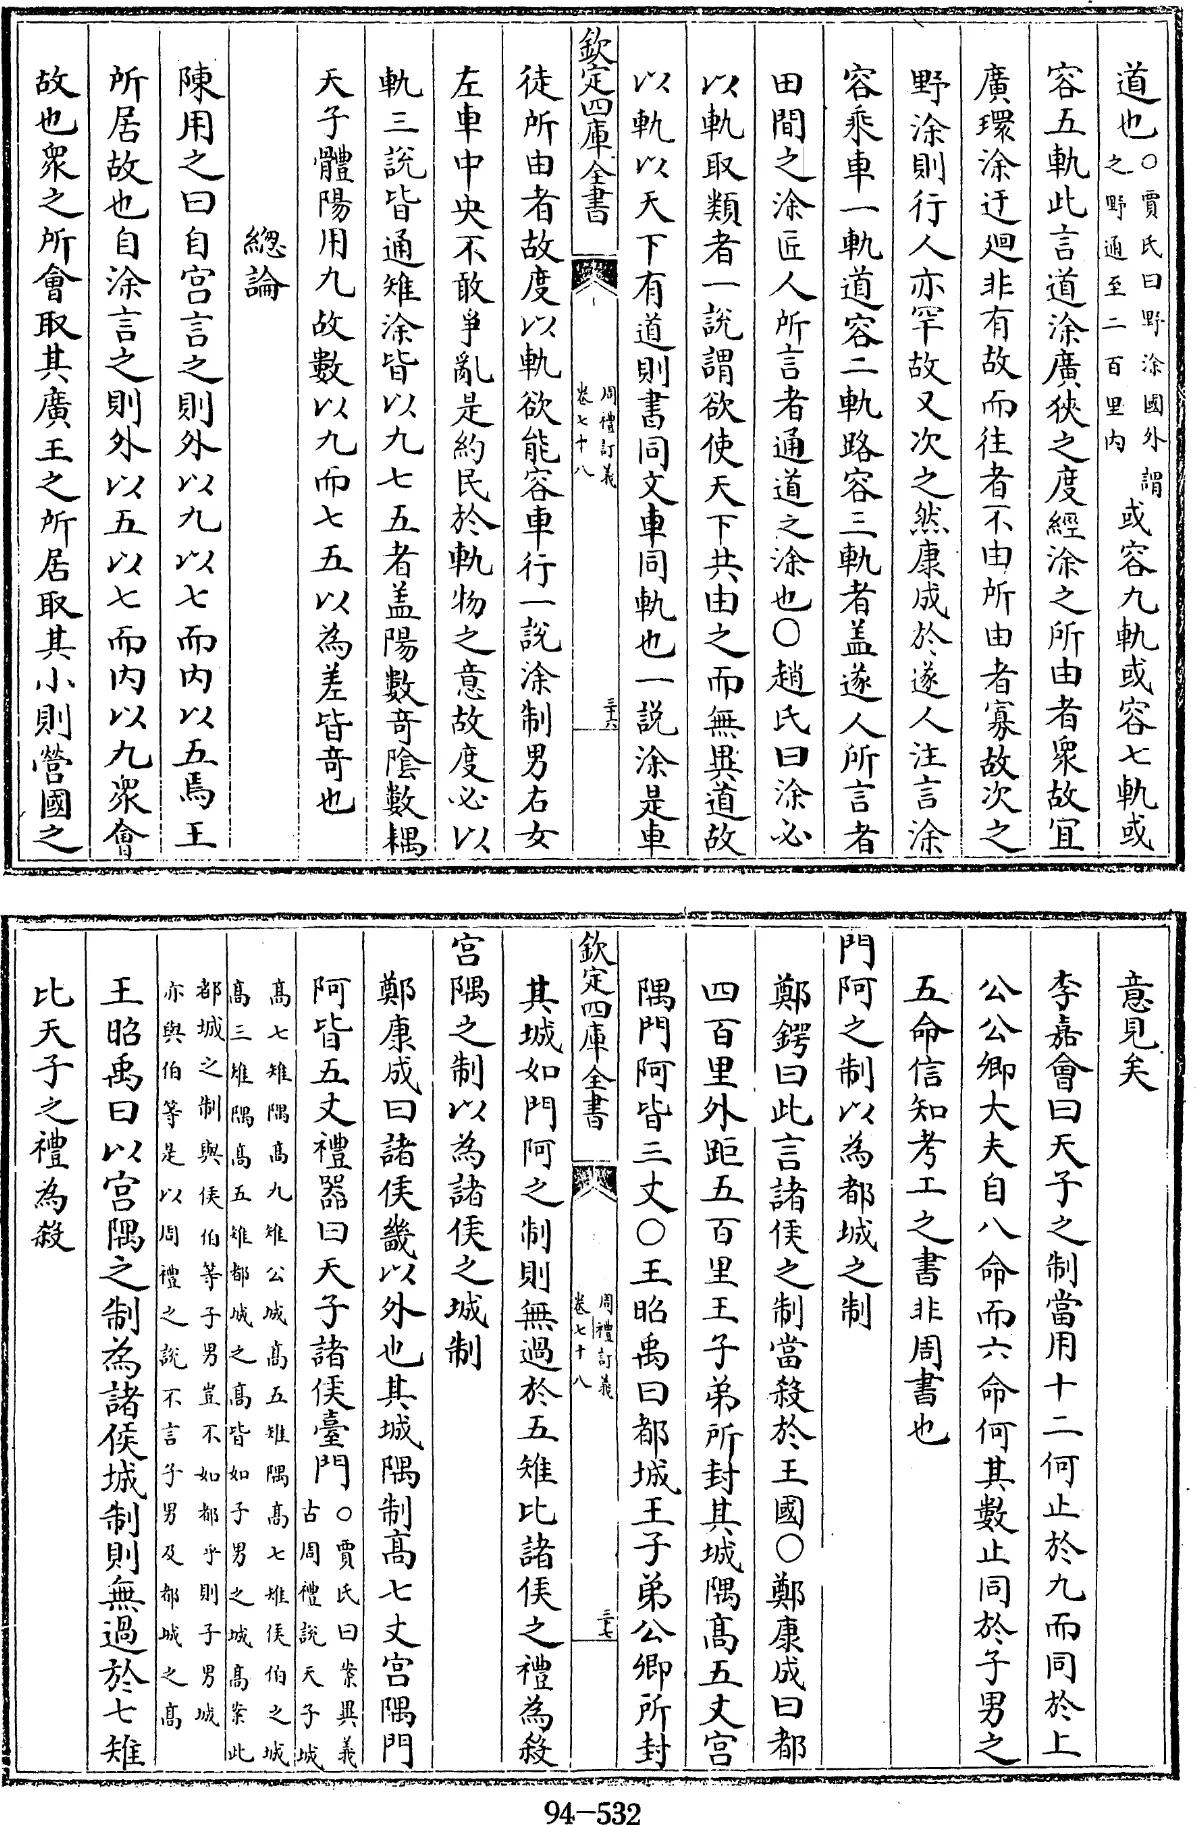 道也○賈氏曰野涂國外謂之野通至二百里内或容九軌或容七軌或
容五軌此言道涂廣狹之度經涂之所由者衆故宜
廣環涂迂廻非有故而往者不由所由者寡故次之
野涂則行人亦罕故又次之然康成於遂人注言涂
容乘車一軌道容二軌路容三軌者盖遂人所言者
田間之涂匠人所言者通道之涂也○趙氏曰涂必
以軌取類者一說謂欲使天下共由之而無異道故
以軌以天下有道則書同文車同軌也一説涂是車
欽定四庫全書
周禮訂義
卷七十八
三十六
徒所由者故度以軌欲能容車行一說涂制男右女
左車中央不敢爭亂是約民於軌物之意故度必以
軌三說皆通雉涂皆以九七五者盖陽數竒陰數耦
天子體陽用九故數以九而七五以為差皆竒也
總論
陳用之曰自宫言之則外以九以七而内以五焉王
所居故也自涂言之則外以五以七而内以九衆會
故也衆之所會取其廣王之所居取其小則營國之
意見矣
李嘉會曰天子之制當用十二何止於九而同於上
公公卿大夫自八命而六命何其數止同於子男之
五命信知考工之書非周書也
門阿之制以為都城之制
鄭鍔曰此言諸侯之制當殺於王國○鄭康成曰都
四百里外距五百里王子弟所封其城隅高五丈宫
隅門阿皆三丈○王昭禹曰都城王子弟公卿所封
欽定四庫全書
周禮訂義
卷七十八
三十七
其城如門阿之制則無過於五雉比諸侯之禮為殺
宫隅之制以為諸侯之城制
鄭康成曰諸侯畿以外也其城隅制高七丈宫隅門
阿皆五丈禮器曰天子諸侯臺門○賈氏曰案異義古周禮説天子城
高七雉隅高九雉公城高五雉隅高七雉侯伯之城
高三雉隅高五雉都城之高皆如子男之城高案此
都城之制與侯伯等子男豈不如都乎則子男城
亦與伯等是以周禮之説不言子男及都城之高
王昭禹曰以宫隅之制為諸侯城制則無過於七雉
比天子之禮為殺
94-532